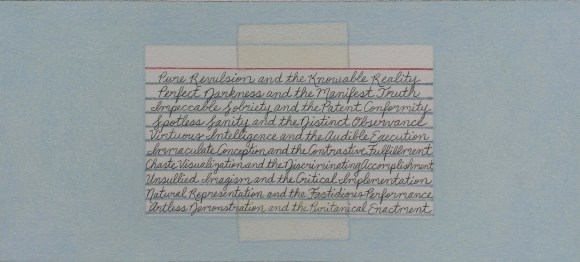 Pure Revulsion and the Knowable Reality
Perfect Darkness and the Manifest Truth
Impeccable Sobriety and the Patent Conformity
Spotless Sanity and the Distinct Observance
Virtuous Intelligence and the Audible Execution
Immaculate Conception and the Contrastive Fulfillment
Chaste Visualization and the Discriminating Accomplishment
Unsullied Imagism and the Critical Implementation
Natural Representation and the Fastidious Performance
Artless Demonstration and the Puritanical Enactment